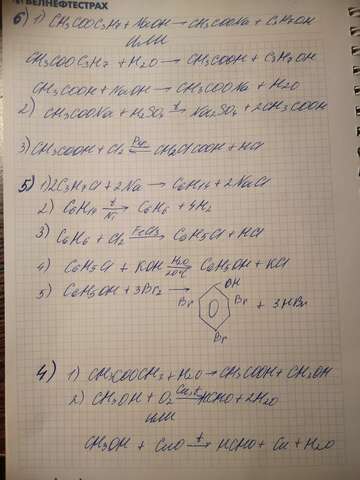 БЕЛНЕФТЕСТРАХ
6) 1) CH3COOC3H7 + NaOH → CH3COONa + C3H7OH
или
CH3COOC3H7 + H2O → CH3COOH + C3H7OH
CH3COOH + NaOH → CH3COONa + H2O
2) CH3COONa + H2SO4 t→ Na2SO4 + 2CH3COOH
3) CH3COOH + Cl2 ⇌ CH2ClCOOH + HCl
5) 1) 2C3H7Cl + 2Na → C6H14 + 2NaCl
2) C6H14 t→ Ni C6H6 + 4H2
3) C6H6 + Cl2 FeCl3→ C6H5Cl + HCl
4) C6H5Cl + KOH H2O→ 20°C C6H5OH + KCl
5) C6H5OH + 3Br2 → OH Br Br Br + 3HBr
4) 1) CH3COOCH3 + H2O → CH3COOH + CH3OH
2) CH3OH + O2 Cu, t→ HCHO + 2H2O
или
CH3OH + CuO t→ HCHO + Cu + H2O